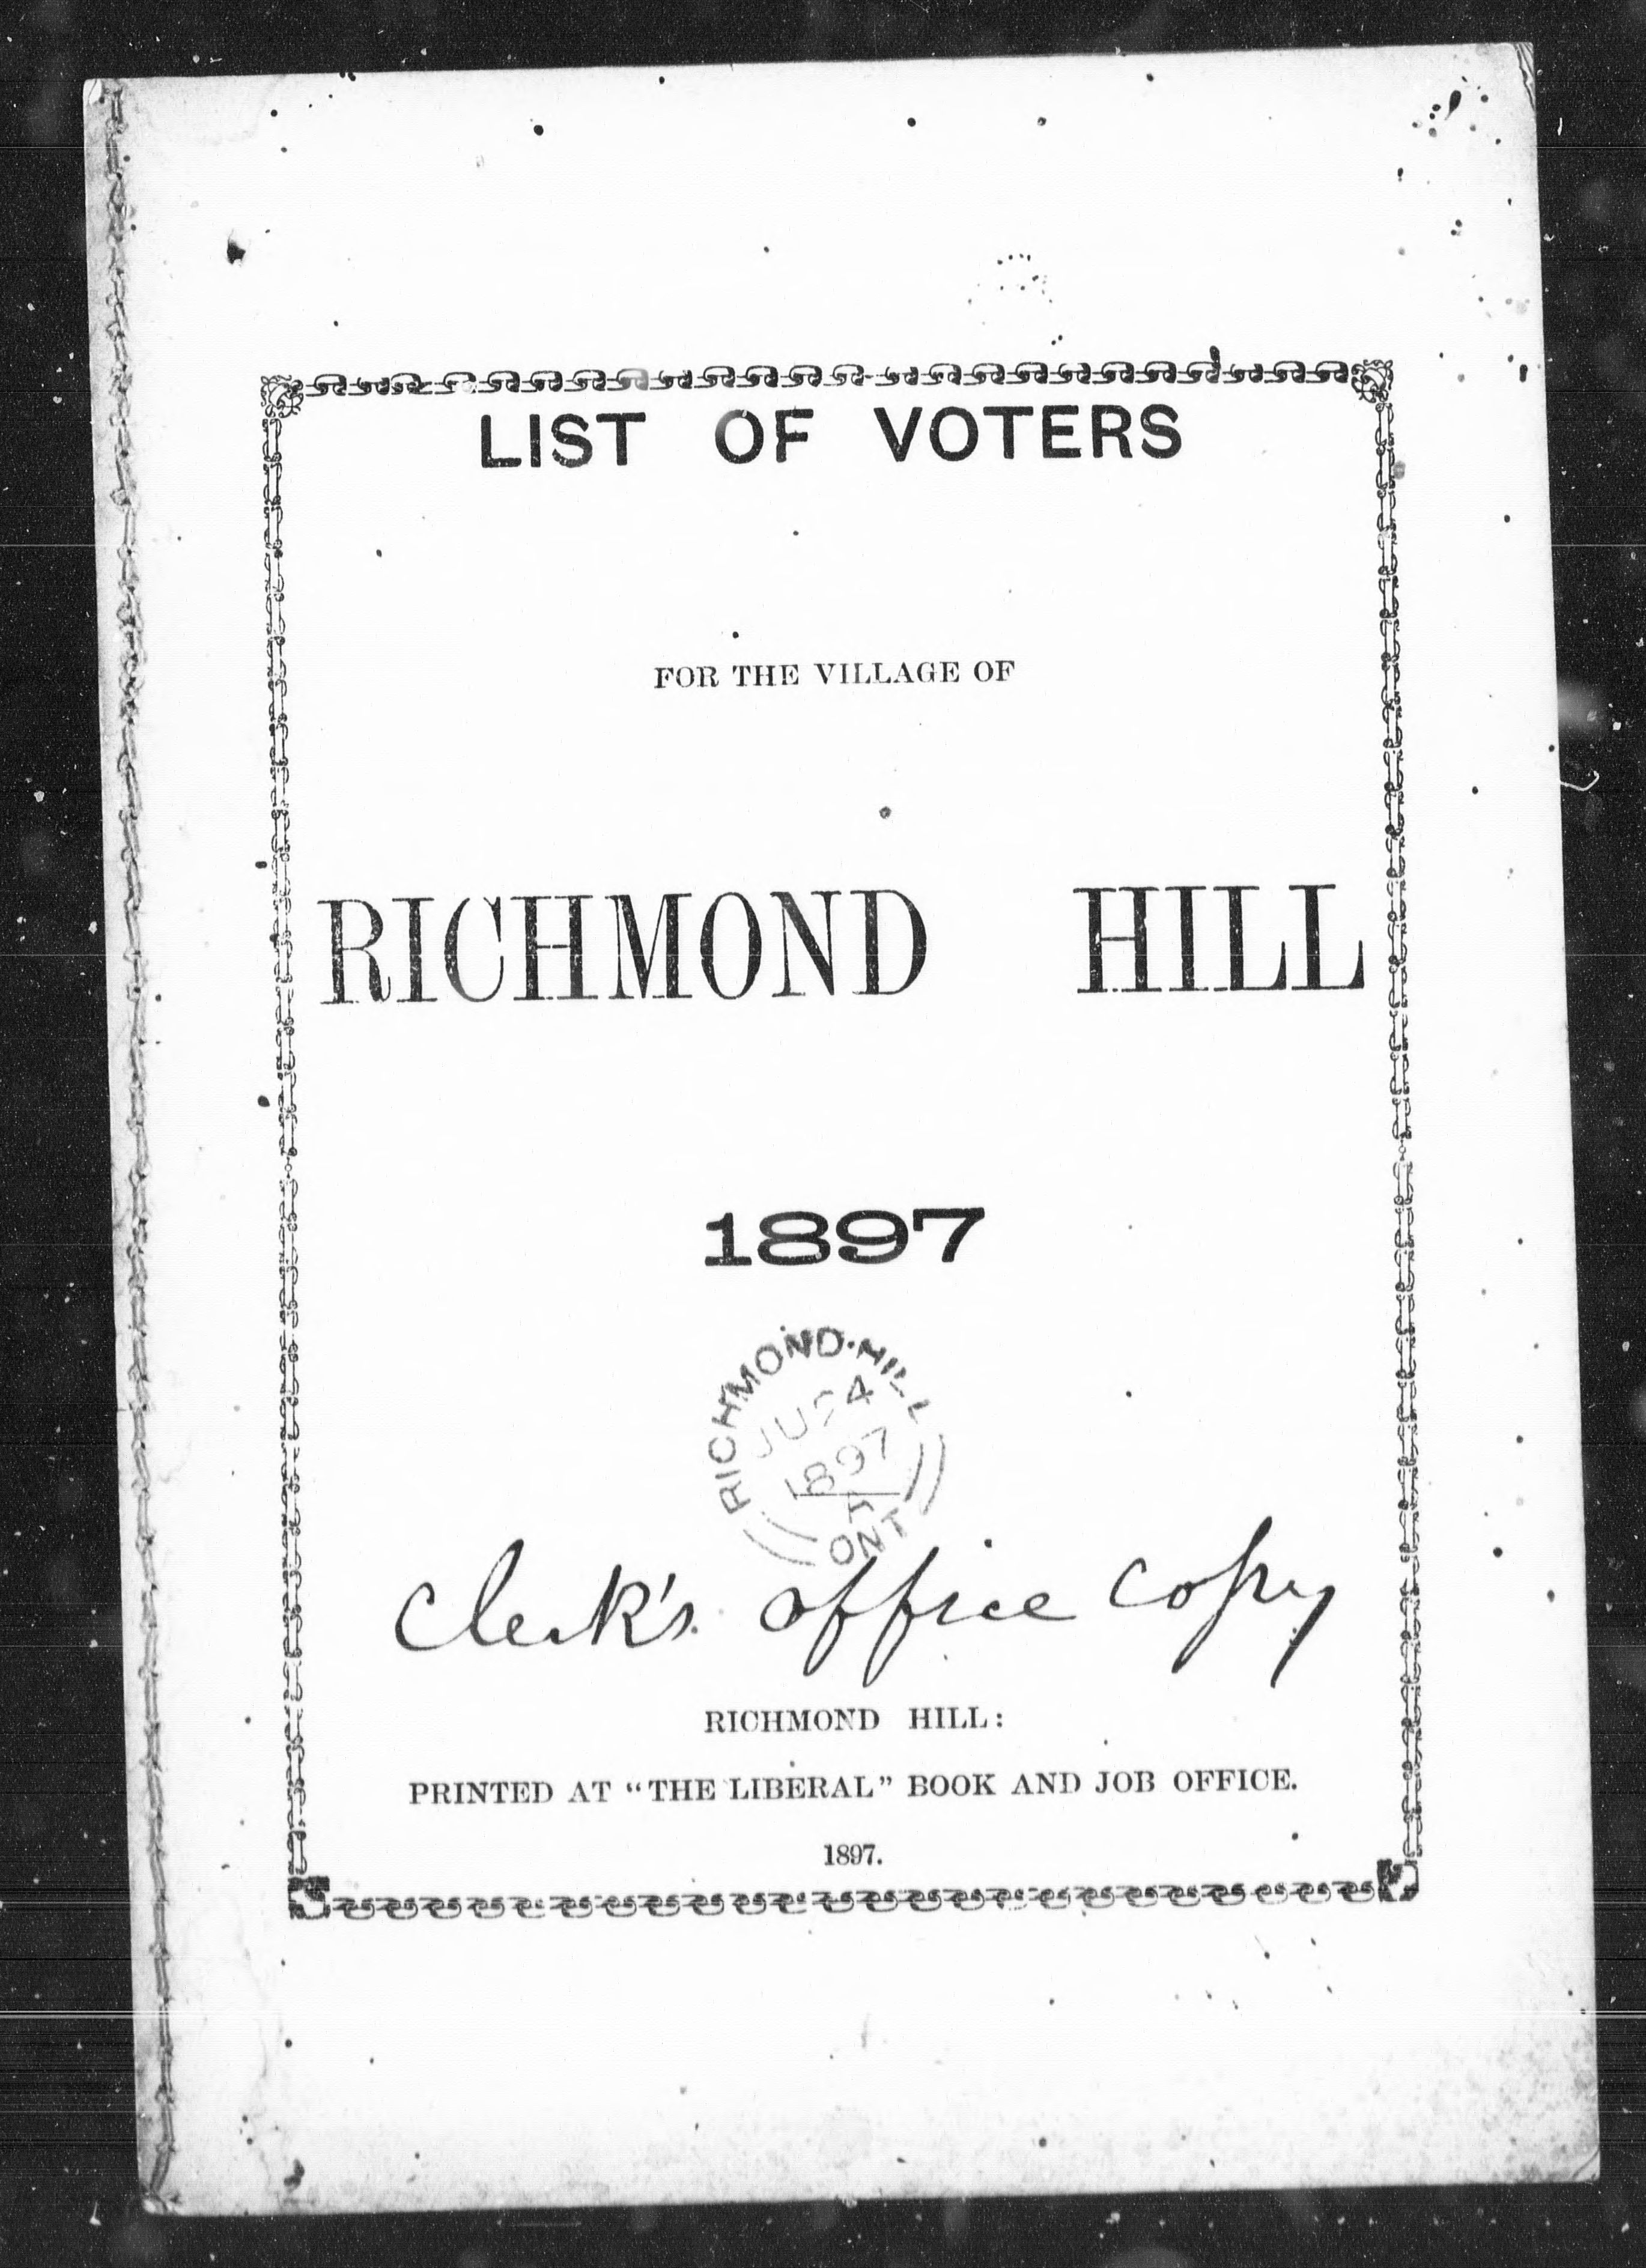 LIST OF VOTERS
FOR THE VILLAGE OF
RICHMOND HILL
1897
RICHMOND·HILL
4
1897
A
ONT
Clerk's office copy
RICHMOND HILL:
PRINTED AT "THE LIBERAL" BOOK AND JOB OFFICE.
1897.